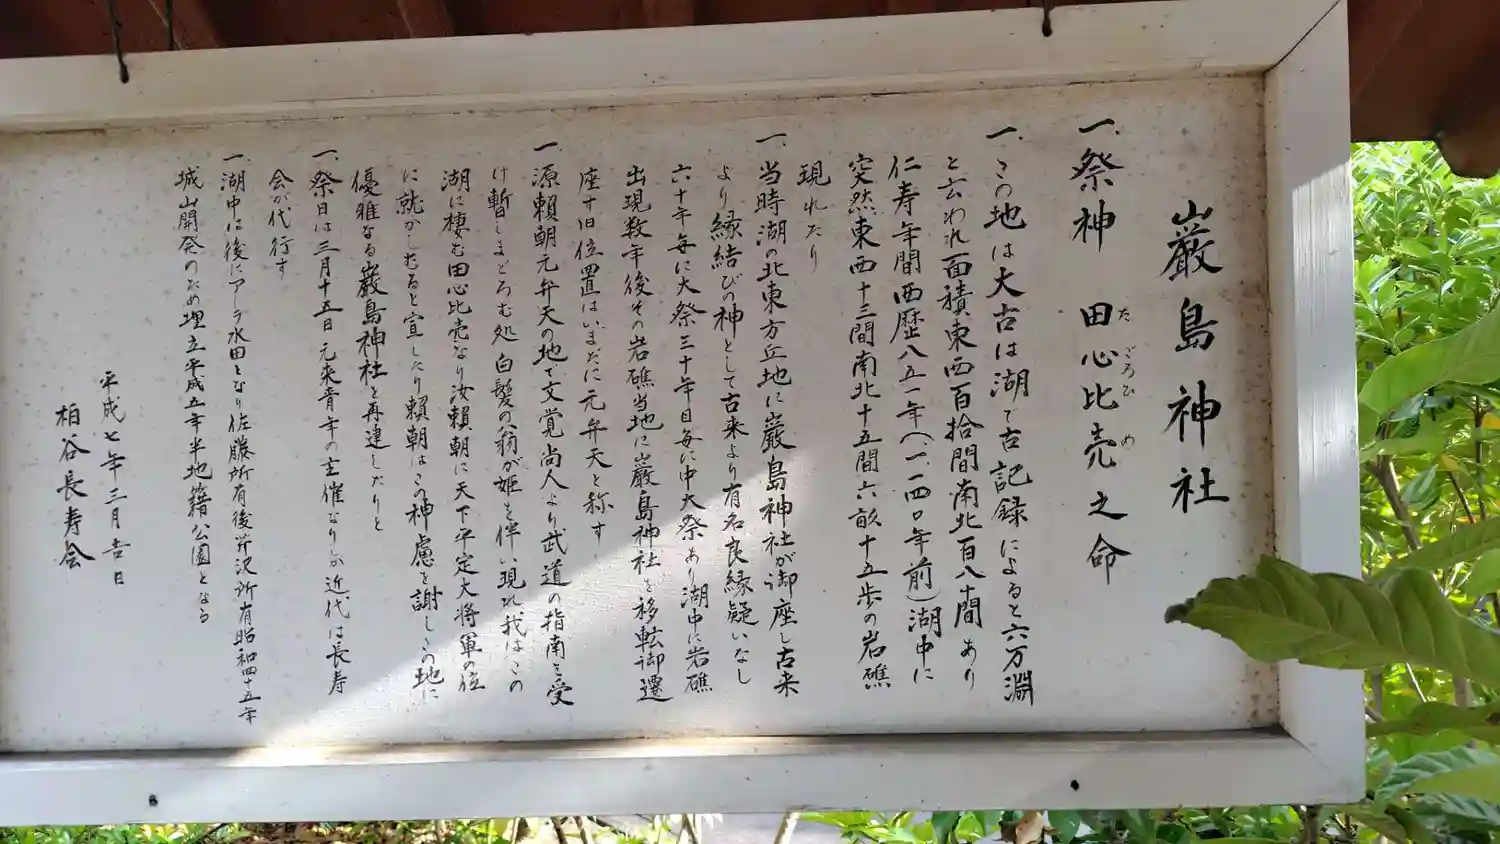 巌島神社
一、祭神　田心比売之命
たごろひめ
一、この地は大古は湖で古記録によると六万淵
と云われ面積東西百拾間南北百八十間あり
仁寿年間西歴八五一年(一、一四〇年前)湖中に
突然東西十三間南北十五間六畝十五歩の岩礁
現れたり
一、当時湖の北東方丘地に巌島神社が御座し古来
より縁結びの神として古来より有名良縁疑いなし
六十年毎に大祭三十年目毎に中大祭あり湖中に岩礁
出現数年後その岩礁当地に巌島神社を移転御遷
座す旧位置はいまだに元弁天と称す
一、源頼朝元弁天の地で文覚尚人より武道の指南を受
け暫しまどろむ処白髪の翁が姫を伴い現れ我はこの
湖に棲む田心比売なり汝頼朝に天下平定大将軍の位
に就かしむると宣したり頼朝はこの神慮を謝しこの地に
優雅なる巌島神社を再建したりと
一、祭日は三月十五日元来青年の主催なりしが近代は長寿
会が代行す
一、湖中は後にアーラ水田となり佐藤所有後芹沢所有昭和四十五年
城山開発のため埋立平成五年半地籍公園となる
平成七年三月吉日
柏谷長寿会